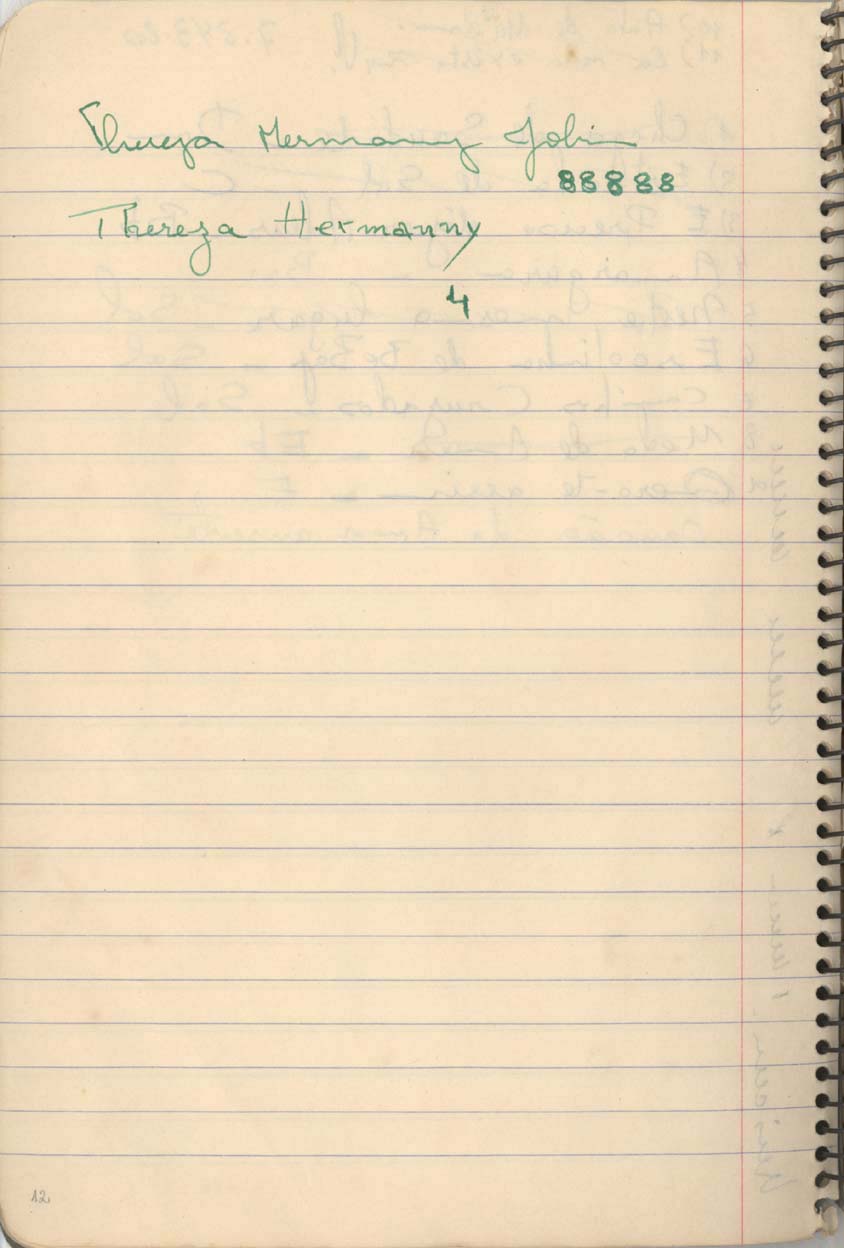 Thereza Hermanny Jobim
88888
Thereza Hermanny
4
12